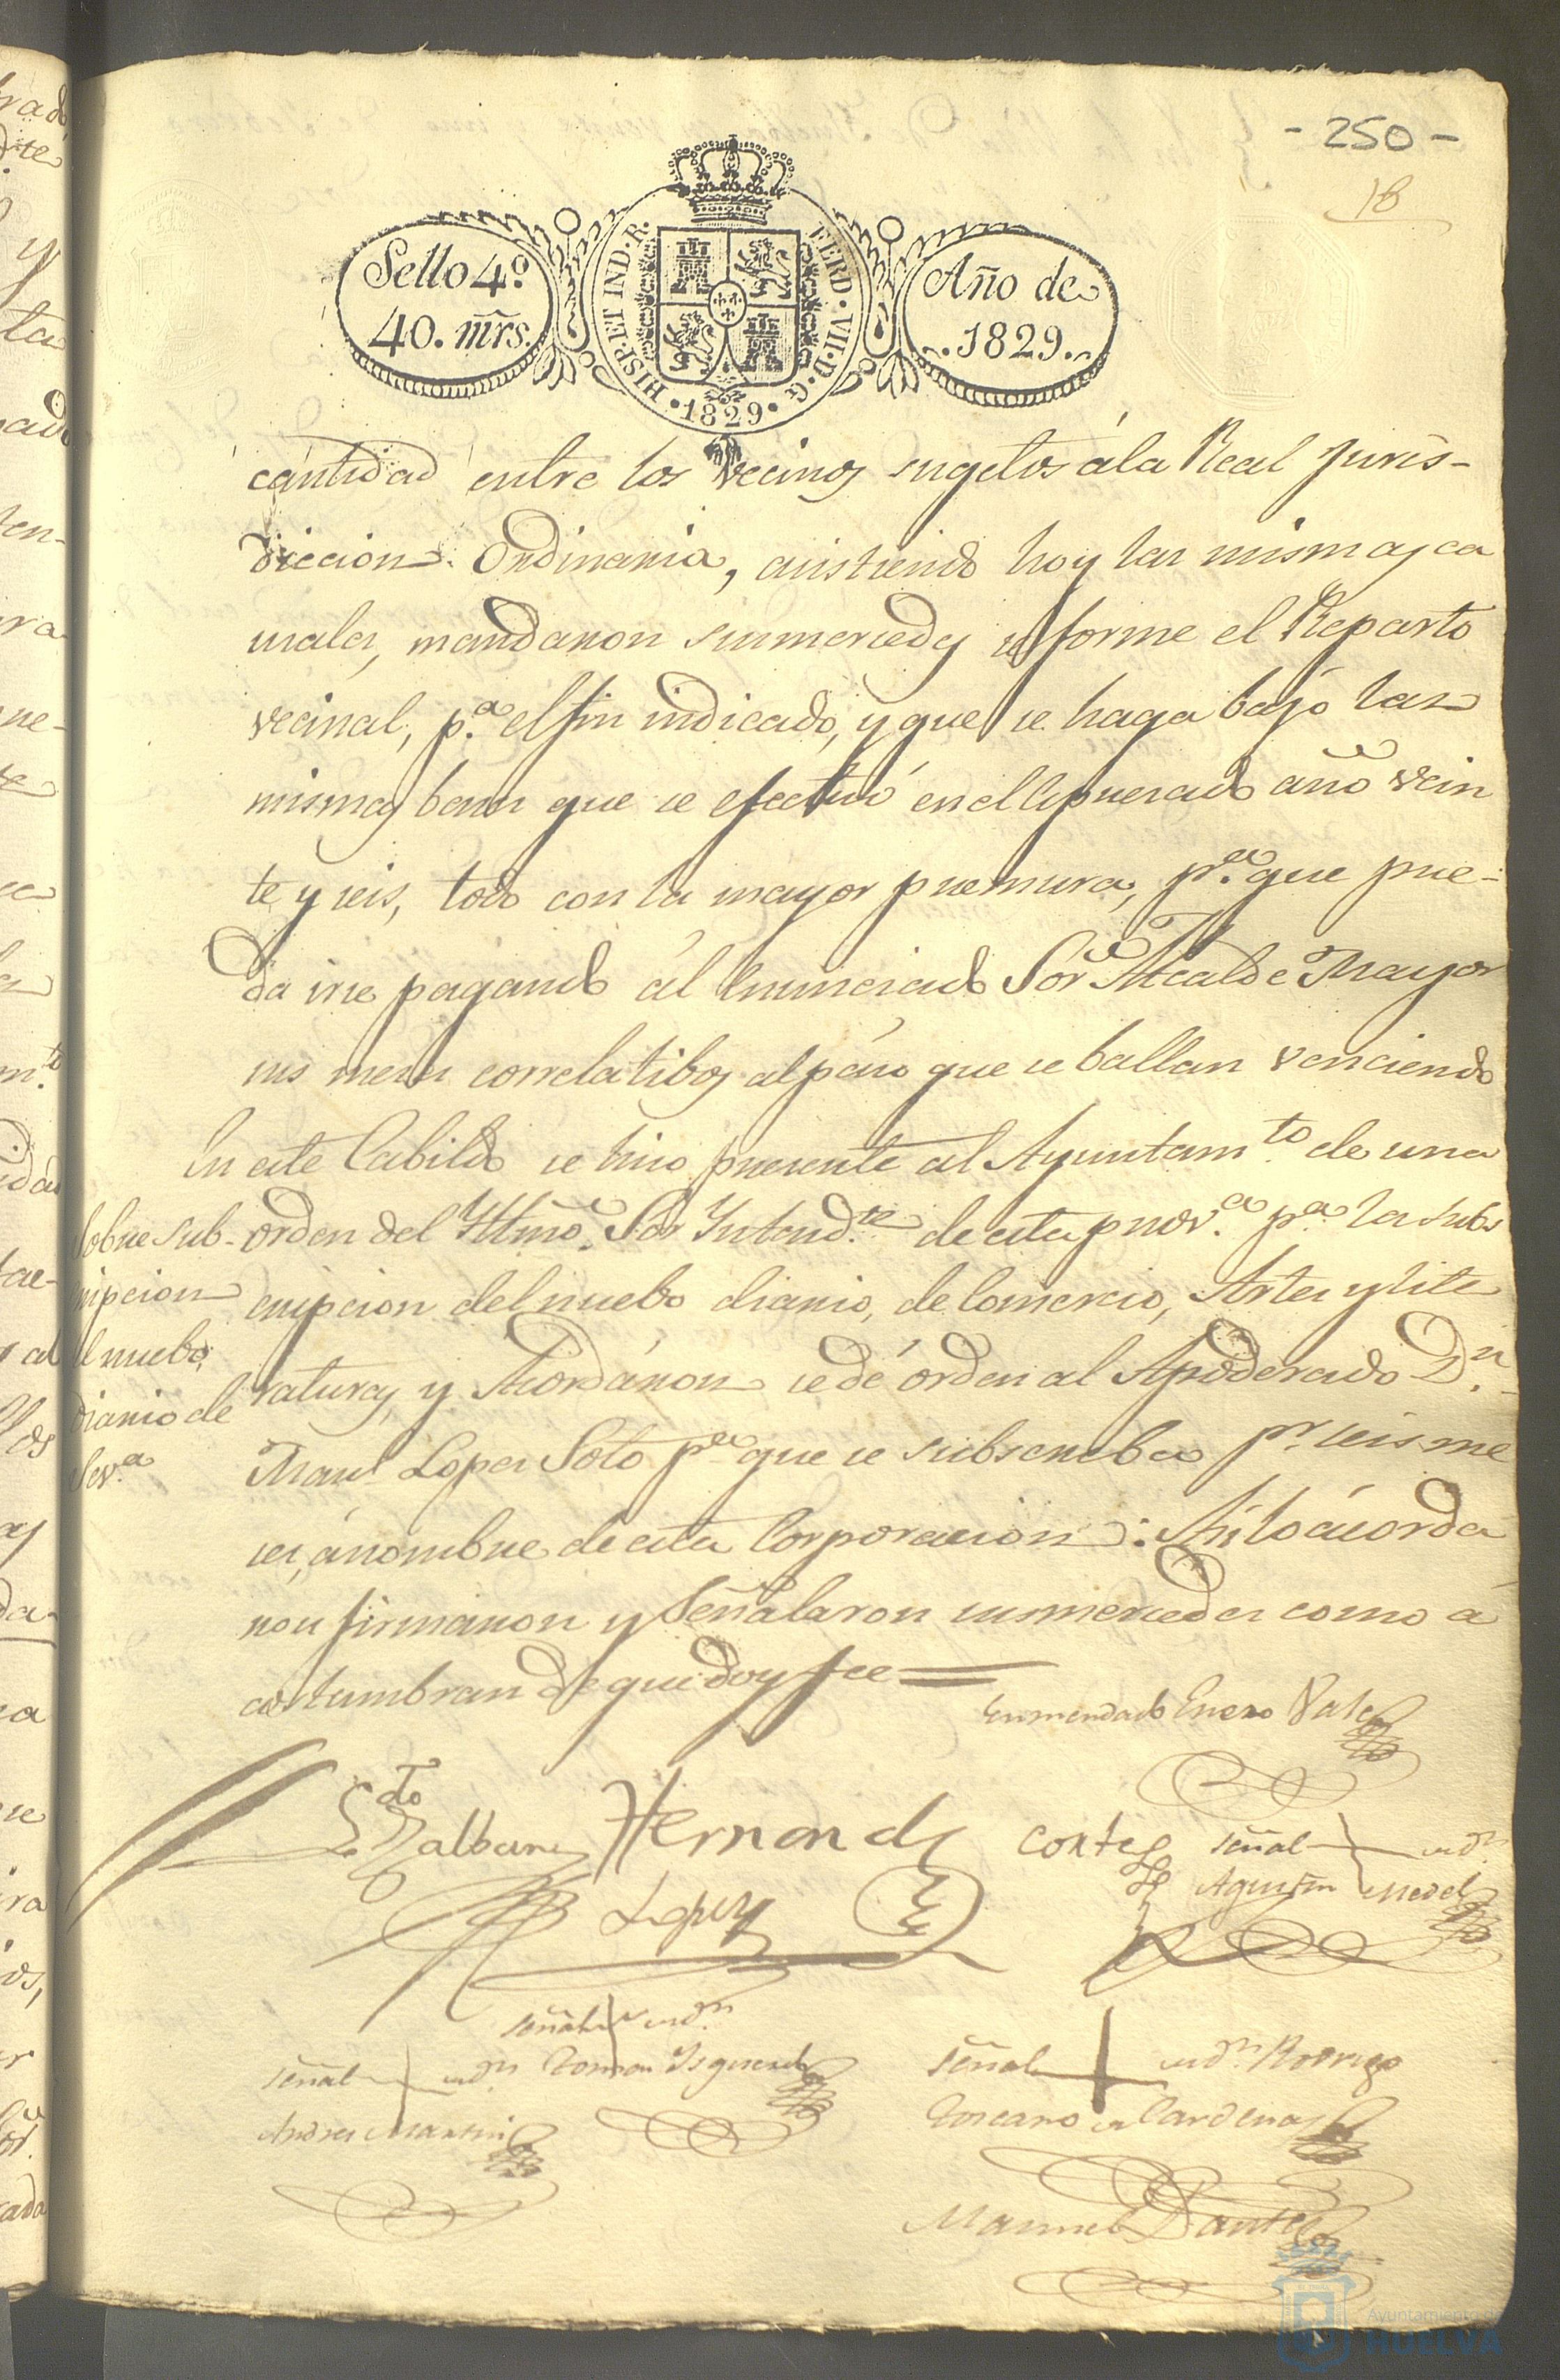 - 250 -
18
Sello 4º
40. mrs.
HISP. ET IND. R.
FERD. VII. D. G.
1829
Año de
1829.
cantidad entre los vecinos sugetos á la Real Juris-
diccion Ordinaria, asistiendo hoy las mismas ca
usales, mandaron sus mercedes se forme el Reparto
vecinal, p.ª el fin indicado, y que se haga bajo las
mismas bases que se efectuó en el espresado año vein
te y seis, todo con la mayor premura, p.ª que pue-
da irse pagando al enunciado Sor. Alcalde Mayor
sus meses correlatibos al paso que se ballan venciendo
En este Cabildo se hiso presente al Ayuntam.to de una
orden del Yltmo. Sor Yntend.te de esta prov.ª p.ª la subs
cripcion del nuebo diario, de Comercio, Artes y lite
raturas, y Acordáron se dé órden al Apoderado D.n
Man.l Lopes Soto p.ª que se subscreba p.r seis me
ses, á nombre de esta Corporacion: Así lo acorda
ron firmaron y Señalaron sus mercedes como á
costumbran de que doy fee =
Sobre sub-
cripcion
el nuebo
diario de
Sev.ª
Enmendado Enero Vale
L.do Zalbans Hernands Cortes
señal de D.n
Agustin Medel
Lopez
señal de D.n
Tomas Isquierdo
señal de D.n
Andres Martin
señal de D.n Rodrigo
Toscano de Cardenas
Manuel Santos
Ayuntamiento de
HUELVA